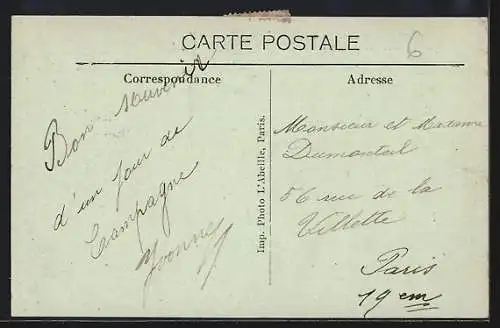 CARTE POSTALE
6
Correspondance
Adresse
Bon souvenir
d'un jour de
Campagne
Yvonne
Imp. Photo L'Abeille, Paris.
Monsieur et Madame
Dumonteil
56 rue de la
Villette
Paris
19 em